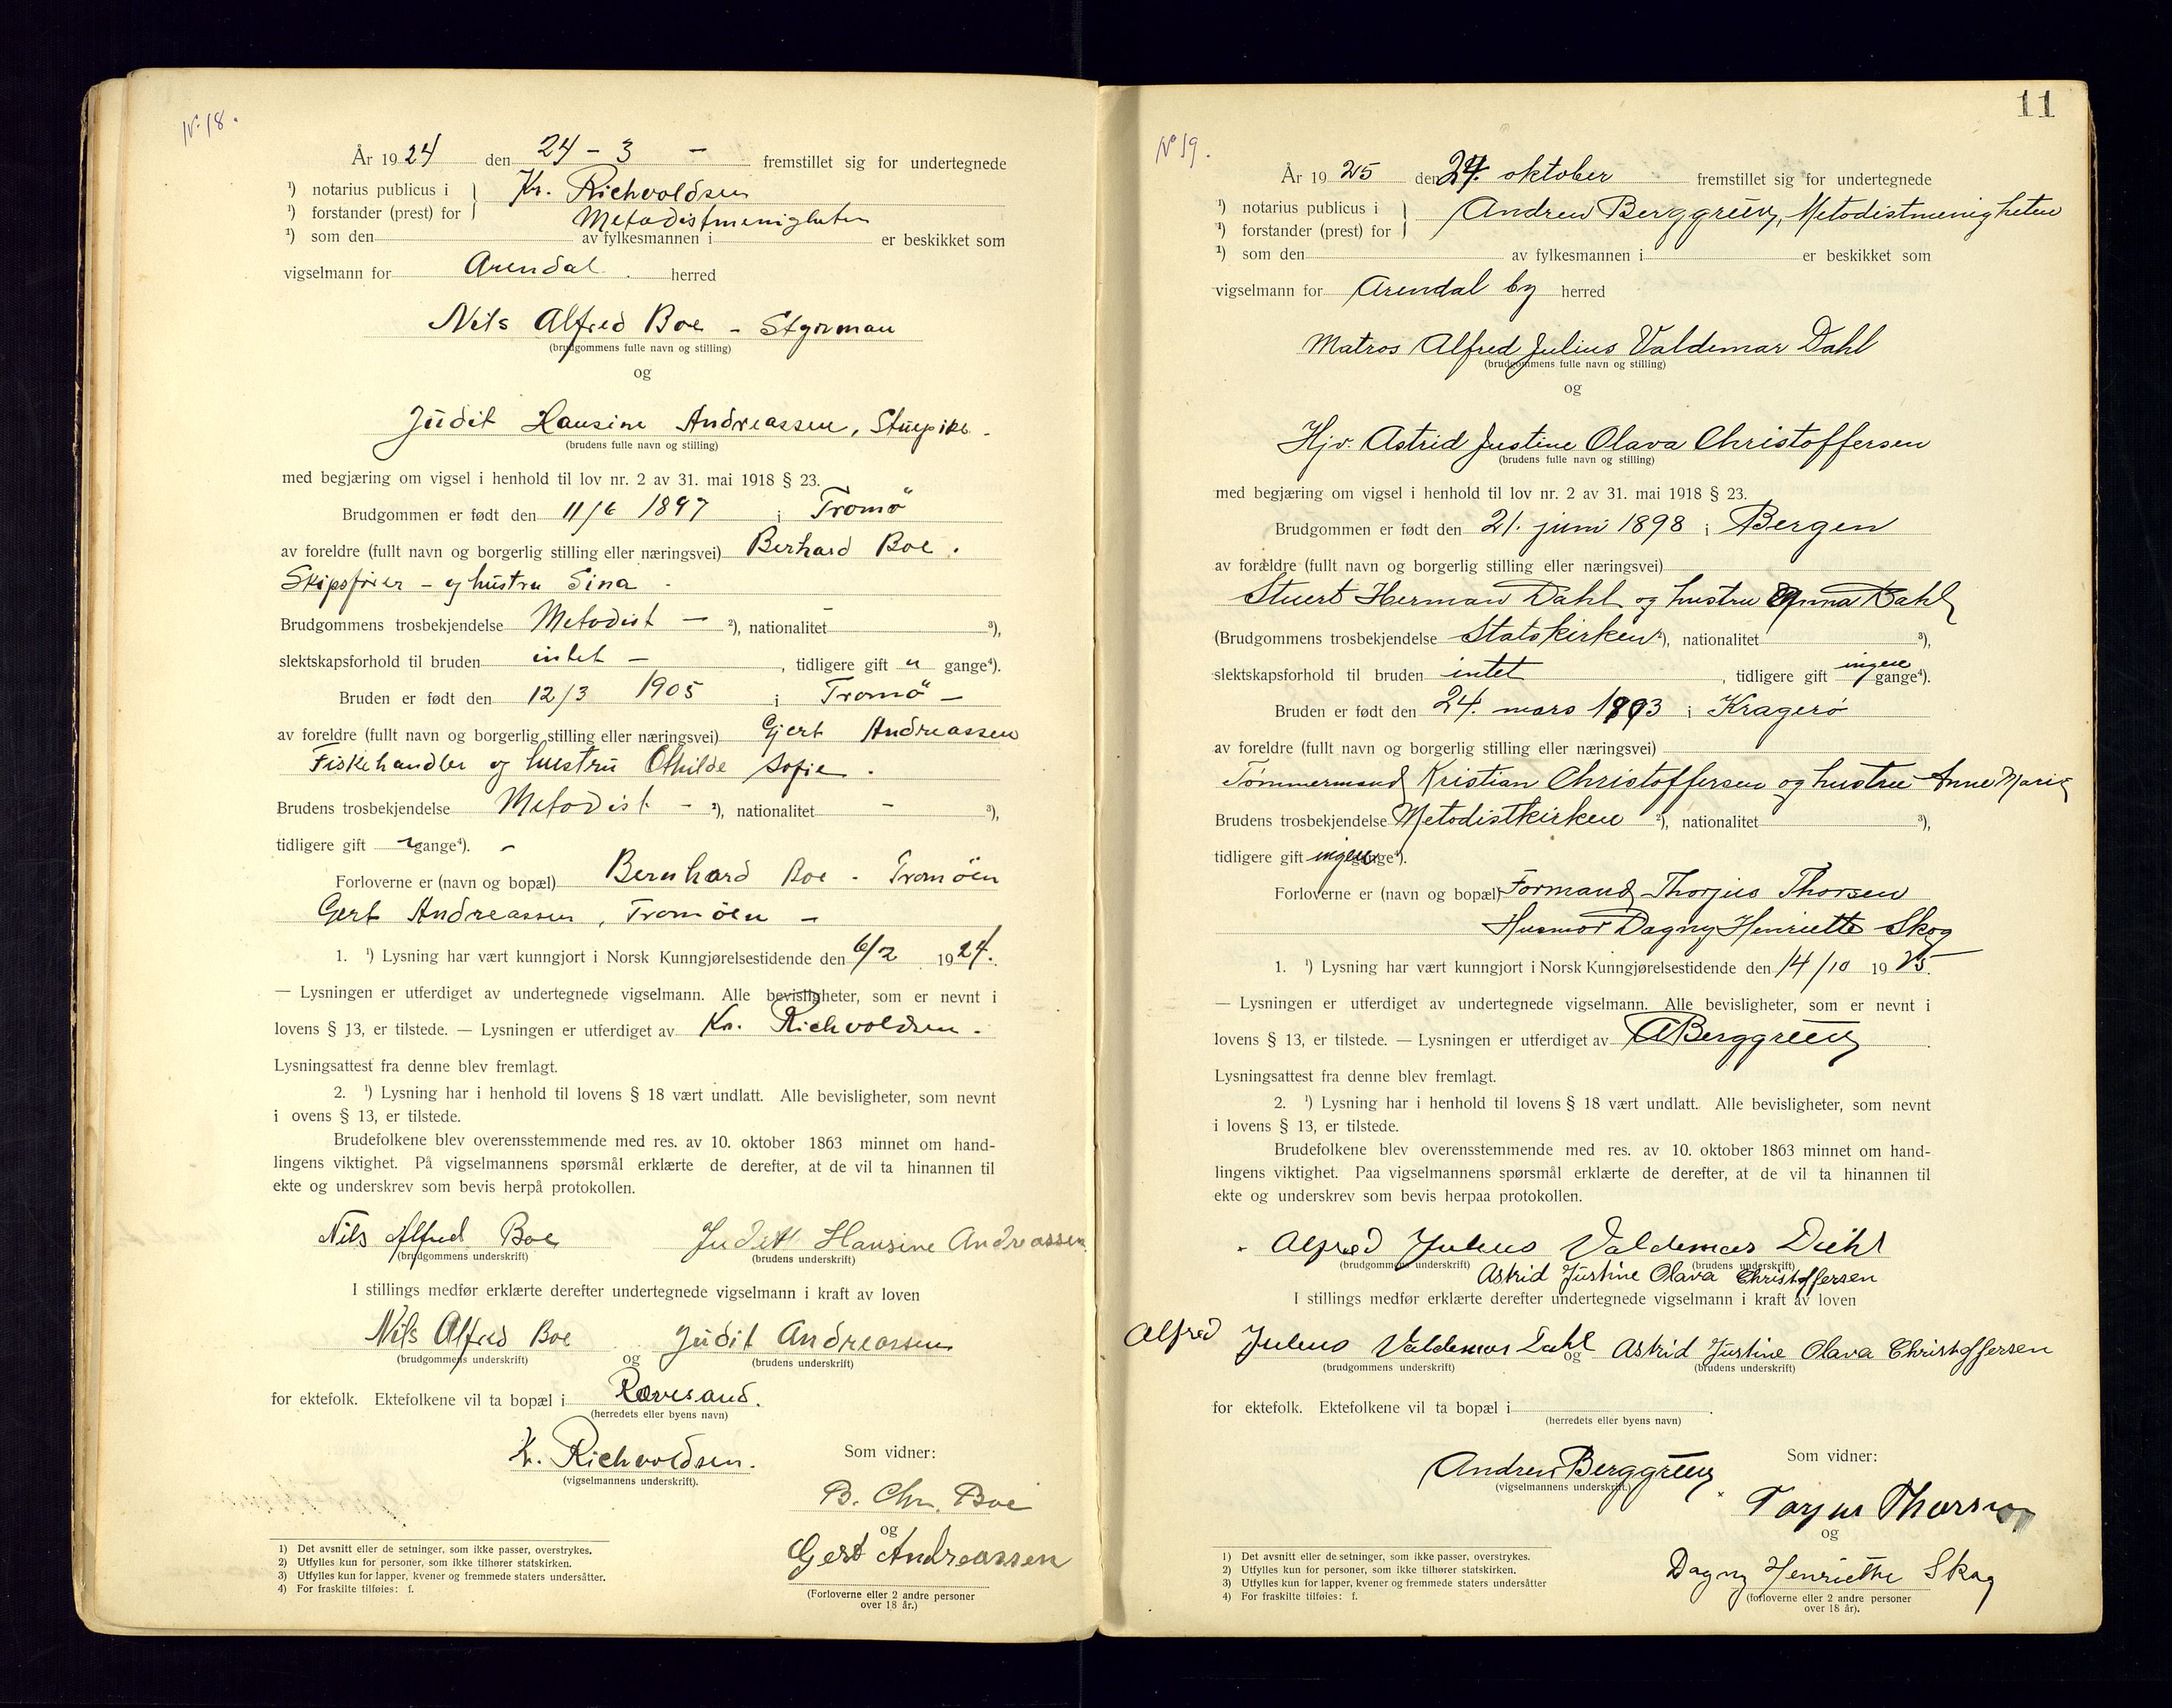 Nº 18.
År 1924 den 24 – 3 – fremstillet sig for undertegnede
¹) notarius publicus i } Kr. Richvoldsen
¹) forstander (prest) for } Metodistmenigheten
¹) som den av fylkesmannen i er beskikket som
vigselmann for Arendal herred
Nils Alfred Boe – Styrman
(brudgommens fulle navn og stilling)
og
Judit Hansine Andreassen, Stuepike.
(brudens fulle navn og stilling)
med begjæring om vigsel i henhold til lov nr. 2 av 31. mai 1918 § 23.
Brudgommen er født den 11/6 1897 i Tromö
av foreldre (fullt navn og borgerlig stilling eller næringsvei) Berhard Boe.
og hustru Sina.
Brudgommens trosbekjendelse Metodist – ²), nationalitet ³),
slektskapsforhold til bruden intet – , tidligere gift " gange⁴).
Bruden er født den 12/3 1905 i Tromö –
av foreldre (fullt navn og borgerlig stilling eller næringsvei) Gjert Andreassen
Fiskehandler og hustru Othilde Sofie.
Brudens trosbekjendelse Metodist – ²), nationalitet – ³),
tidligere gift – gange⁴). –
Forloverne er (navn og bopæl) Bernhard Boe – Tromöen
Gert Andreassen, Tromöen –
1. ¹) Lysning har vært kunngjort i Norsk Kunngjørelsestidende den 6/2 1924.
— Lysningen er utferdiget av undertegnede vigselmann. Alle bevisligheter, som er nevnt i
lovens § 13, er tilstede. — Lysningen er utferdiget av Kr. Richvoldsen.
Lysningsattest fra denne blev fremlagt.
2. ¹) Lysning har i henhold til lovens § 18 vært undlatt. Alle bevisligheter, som nevnt
i ovens § 13, er tilstede.
Brudefolkene blev overensstemmende med res. av 10. oktober 1863 minnet om hand-
lingens viktighet. På vigselmannens spørsmål erklærte de derefter, at de vil ta hinannen til
ekte og underskrev som bevis herpå protokollen.
Nils Alfred Boe Judith Hansine Andreassen
(brudgommens underskrift) (brudens underskrift)
I stillings medfør erklærte derefter undertegnede vigselmann i kraft av loven
Nils Alfred Boe og Judit Andreassen
(brudgommens underskrift) (brudens underskrift)
for ektefolk. Ektefolkene vil ta bopæl i Rævesand.
(herredets eller byens navn)
Kr. Richvoldsen.
(vigselmannens underskrift).
Som vidner:
B. Chr. Boe
og
Gert Andreassen
(Forloverne eller 2 andre personer
over 18 år.)
1) Det avsnitt eller de setninger, som ikke passer, overstrykes.
2) Utfylles kun for personer, som ikke tilhører statskirken.
3) Utfylles kun for lapper, kvener og fremmede staters undersåtter.
4) For fraskilte tilføies: f.
11
Nº 19.
År 1925 den 24. oktober fremstillet sig for undertegnede
¹) notarius publicus i } Andrew Berggreen, Metodistmenigheten
¹) forstander (prest) for }
¹) som den av fylkesmannen i er beskikket som
vigselmann for Arendal by herred
Matros Alfred Julius Valdemar Dahl
(brudgommens fulle navn og stilling)
og
Hjv. Astrid Justine Olava Christoffersen
(brudens fulle navn og stilling)
med begjæring om vigsel i henhold til lov nr. 2 av 31. mai 1918 § 23.
Brudgommen er født den 21. juni 1898 i Bergen
av forældre (fullt navn og borgerlig stilling eller næringsvei)
Stuert Herman Dahl og hustru Anna Dahl
(Brudgommens trosbekjendelse Statskirken ²), nationalitet ³),
slektskapsforhold til bruden intet , tidligere gift ingen gange⁴).
Bruden er født den 24. mars 1893 i Kragerø
av foreldre (fullt navn og borgerlig stilling eller næringsvei)
Tømmermand Kristian Christoffersen og hustru Anne Marie
Brudens trosbekjendelse Metodistkirken ²), nationalitet ³),
tidligere gift ingen gange⁴).
Forloverne er (navn og bopæl) Formand Thorjus Thorsen
Husmor Dagny Henriette Skog
1. ¹) Lysning har vært kunngjort i Norsk Kunngjørelsestidende den 14/10 1925.
— Lysningen er utferdiget av undertegnede vigselmann. Alle bevisligheter, som er nevnt i
lovens § 13, er tilstede. — Lysningen er utferdiget av A Berggreen
Lysningsattest fra denne blev fremlagt.
2. ¹) Lysning har i henhold til lovens § 18 vært undlatt. Alle bevisligheter, som nevnt
i lovens § 13, er tilstede.
Brudefolkene blev overensstemmende med res. av 10. oktober 1863 minnet om hand-
lingens viktighet. Paa vigselmannens spørsmål erklærte de derefter, at de vil ta hinannen til
ekte og underskrev som bevis herpaa protokollen.
Alfred Julius Valdemar Dahl
(brudgommens underskrift) (brudens underskrift)
Astrid Justine Olava Christoffersen
I stillings medfør erklærte derefter undertegnede vigselmann i kraft av loven
Alfred Julius Valdemar Dahl og Astrid Justine Olava Christoffersen
(brudgommens underskrift) (brudens underskrift)
for ektefolk. Ektefolkene vil ta bopæl i .
(herredets eller byens navn)
Andrew Berggreen
(vigselmannens underskrift.)
Som vidner:
Torjus Thorsen
og
Dagny Henriette Skog
(forloverne eller 2 andre personer
over 18 år).
1) Det avsnitt eller de setninger, som ikke passer, overstrykes.
2) Utfylles kun for personer, som ikke tilhører statskirken.
3) Utfylles kun for lapper, kvener og fremmede staters undersåtter
4) For fraskilte tilføies: f.